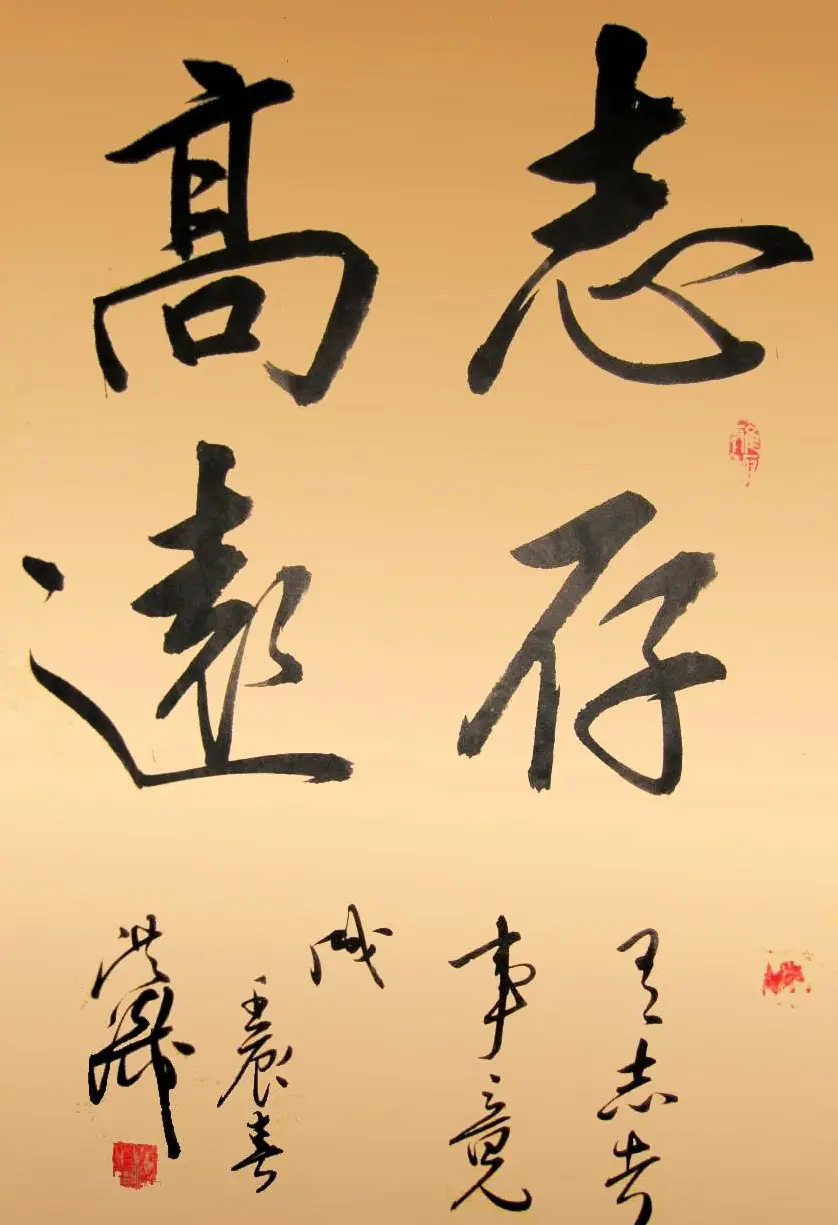 志存
高遠
有志者
事竟
成
壬辰春
洪